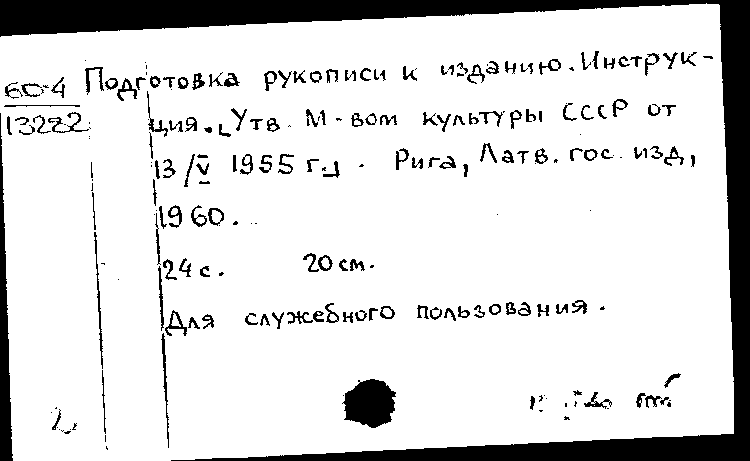 60-4 Подготовка рукописи к изданию. Инструк-
13282 ция. [Утв. М-вом культуры СССР от
13/V 1955 г.]. Рига, Латв. гос. изд,
1960.
24 с. 20 см.
Для служебного пользования.
2